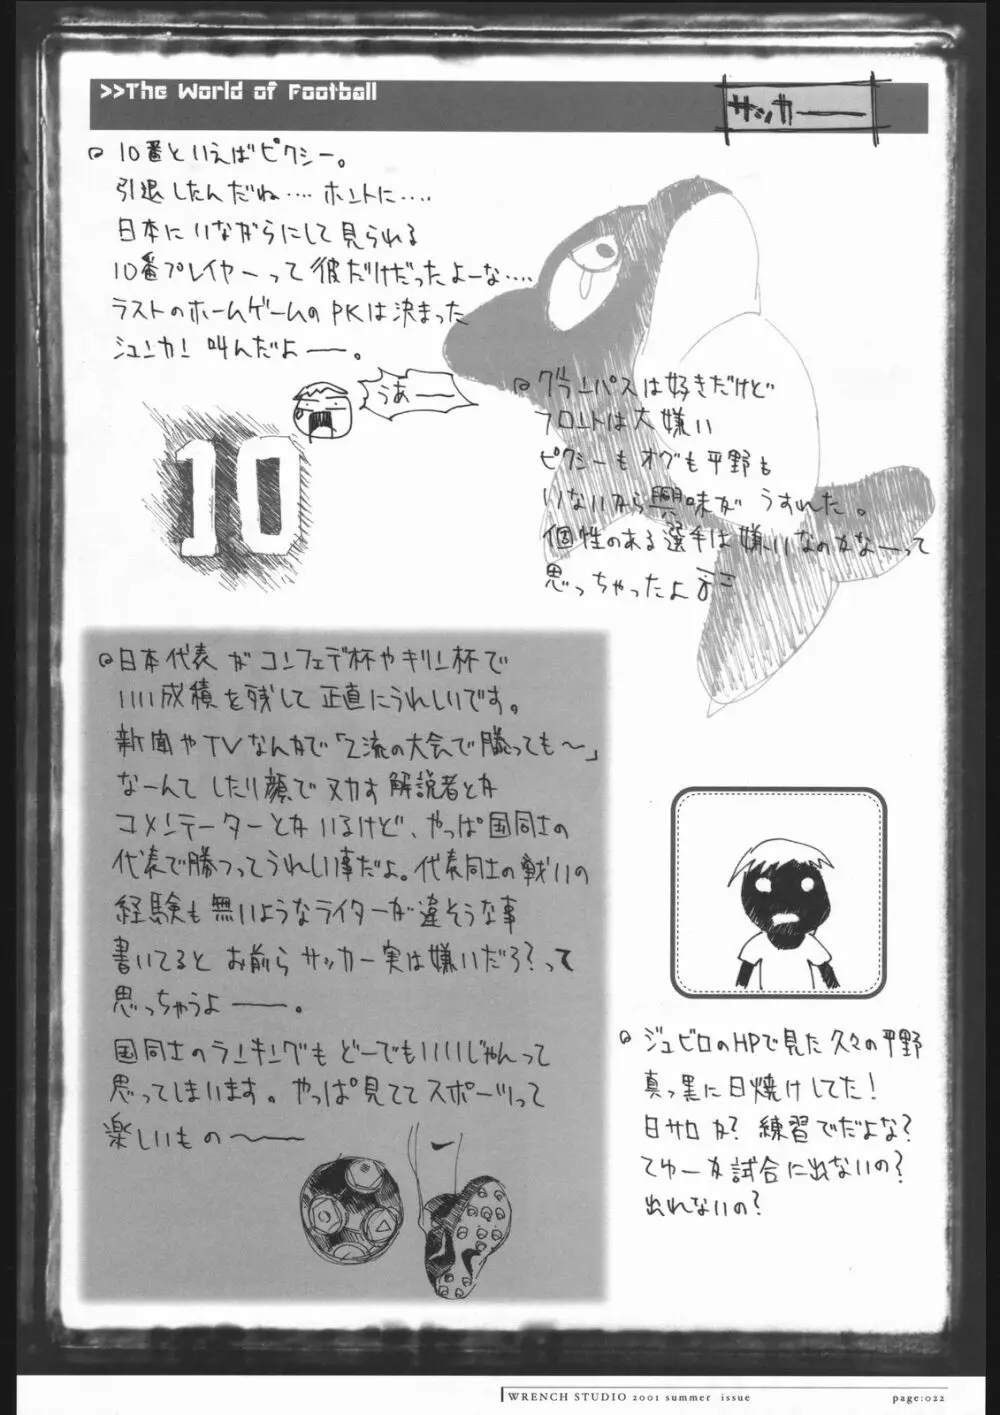 >>The World of Football
サッカー
10番といえばピクシー。
引退したんだね…. ホントに….
日本にいながらにして見られる
10番プレイヤーって彼だけだったよーな….
ラストのホームゲームのPKは決まった
シュンカン 叫んだよー。
うあー
10
グランパスは好きだけど
フロントは大嫌い
ピクシーもオグも平野も
いないから興味がうすれた。
個性のある選手は嫌いなのかなーって
思っちゃったよ
日本代表がコンフェデ杯やキリン杯で
いい成績を残して正直にうれしいです。
新聞やTVなんかで「2流の大会で勝っても〜」
なーんてしたり顔でヌカす解説者とか
コメンテーターとかいるけど、やっぱ国同士の
代表で勝つってうれしい事だよ。代表同士の戦いの
経験も無いようなライターが違そうな事
書いてると お前ら サッカー実は嫌いだろ?って
思っちゃうよー。
国同士のランキングもどーでもいいじゃんって
思ってしまいます。やっぱ見ててスポーツって
楽しいもの〜
ジュビロのHPで見た久々の平野
真っ黒に日焼けしてた!
日サロか? 練習でだよな?
てゆーか試合に出ないの?
出れないの?
WRENCH STUDIO 2001 summer issue
page:022